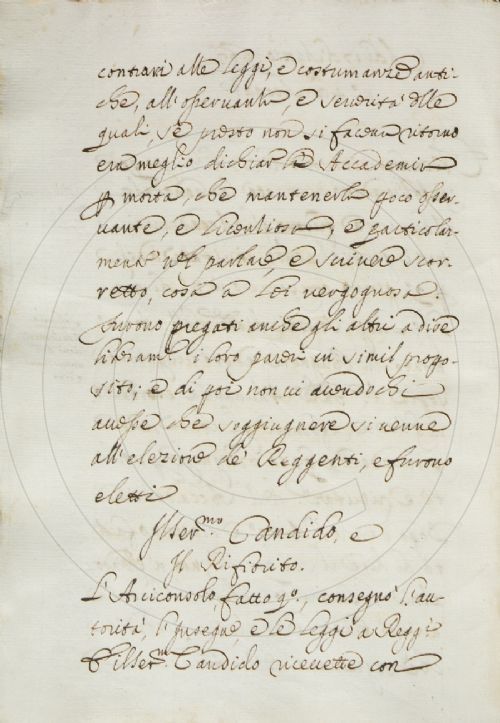 contrari alle leggi, e costumanze anti-
che, all'osservanza, e severità delle
quali, se presto non si facea ritorno
era meglio dichiar la Accademia
p morta, che mantenerla poco osser-
vante, e licenziosa, e particolar-
mente nel parlare, e scrivere scor-
retto, cosa a lei vergognosa.
Furono pregati anche gli altri a dire
liberam.te i loro pareri in simil propo-
sito; e di poi non vi avendo chi
avesse che soggiugnere si venne
all'elezione de' Reggenti, e furono
eletti
Il Ser.mo Candido, e
Il Rifiorito.
L'Arciconsolo, fatto q.o, consegnò l'au-
torità, l'insegne e le leggi a Regg.i
e il Ser.mo Candido ricevette con